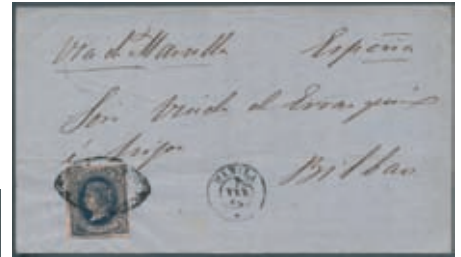 Via d' Marsella España
Son Viuda d Errazquin
é hijos
Bilbao
MANILA